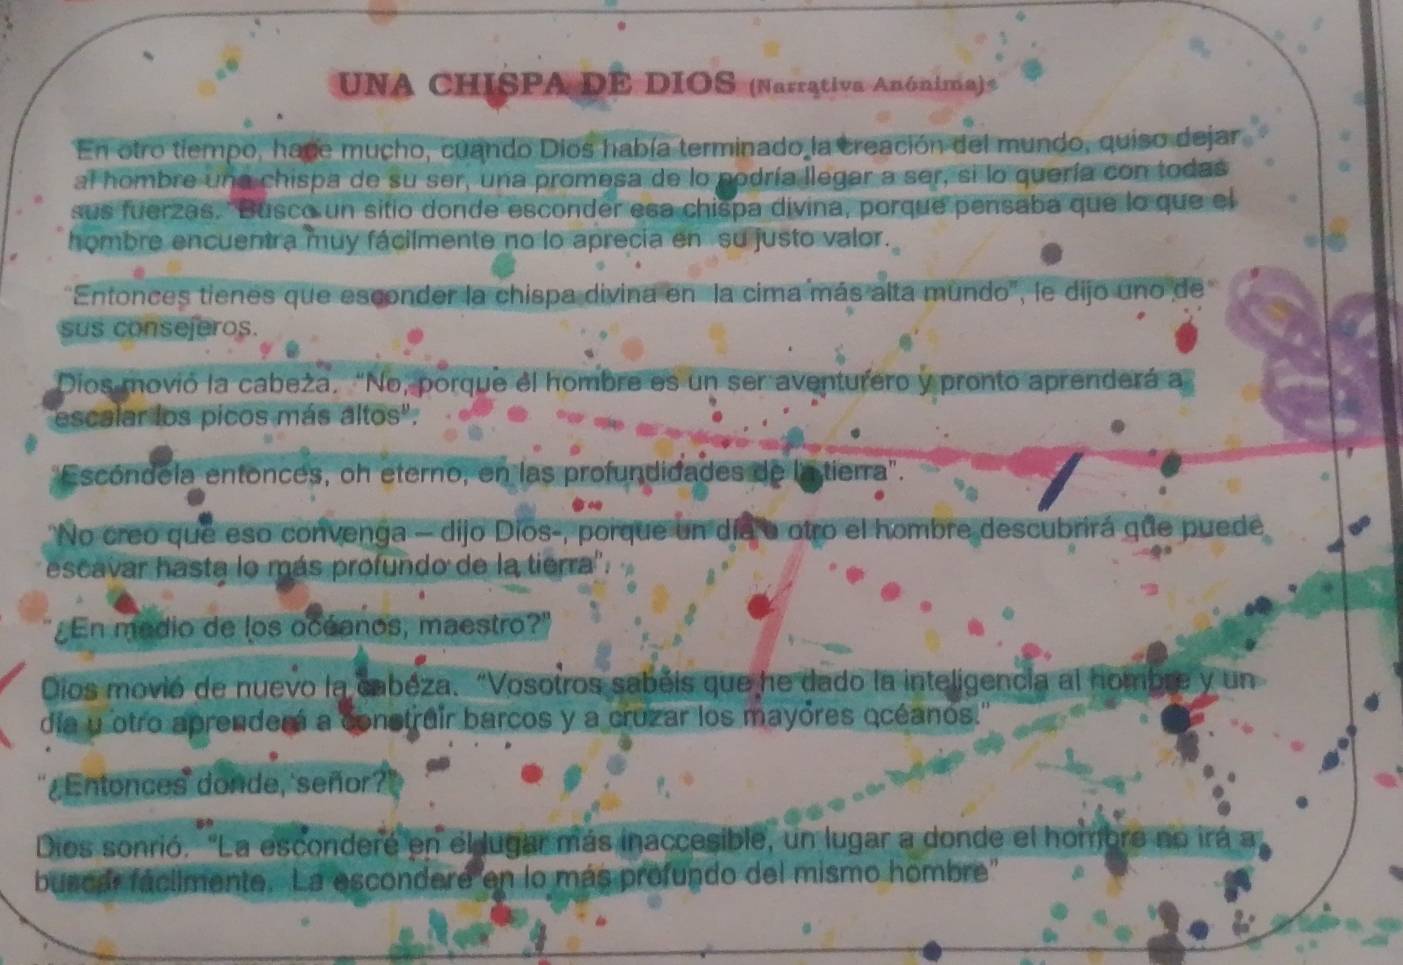 UNA CHISPA DE DIOS (Narrativa Anónima)
En otro tiempo, hace mucho, cuando Dios había terminado la creación del mundo, quiso dejar
al hombre una chispa de su ser, una promesa de lo podría llegar a ser, si lo quería con todas
sus fuerzas. Busco un sitio donde esconder esa chispa divina, porque pensaba que lo que el
hombre encuentra muy fácilmente no lo aprecia en su justo valor.
"Entonces tienes que esconder la chispa divina en la cima más alta mundo", le dijo uno de
sus consejeros.
Dios movió la cabeza. "No, porque él hombre es un ser aventurero y pronto aprenderá a
escalar los picos más altos".
"Escóndela entonces, oh eterno, en las profundidades de la tierra".
"No creo que eso convenga – dijo Dios-, porque un día u otro el hombre descubrirá que puede
escavar hasta lo más profundo de la tierra".
"¿En medio de los océanos, maestro?"
Dios movió de nuevo la cabeza. "Vosotros sabéis que he dado la inteligencia al hombre y un
día u otro aprenderá a construir barcos y a cruzar los mayores océanos."
"¿Entonces donde, señor?"
Dios sonrió. "La esconderé en el lugar más inaccesible, un lugar a donde el hombre no irá a
buscar fácilmente. La esconderé en lo más profundo del mismo hombre"